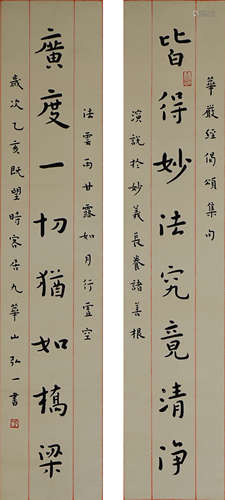 華嚴經偈頌集句
皆得妙法究竟清淨
演說於妙義長養諸善根
廣度一切猶如橋梁
法雲雨甘露如月行虛空
歲次乙亥既望時客居九華山弘一書